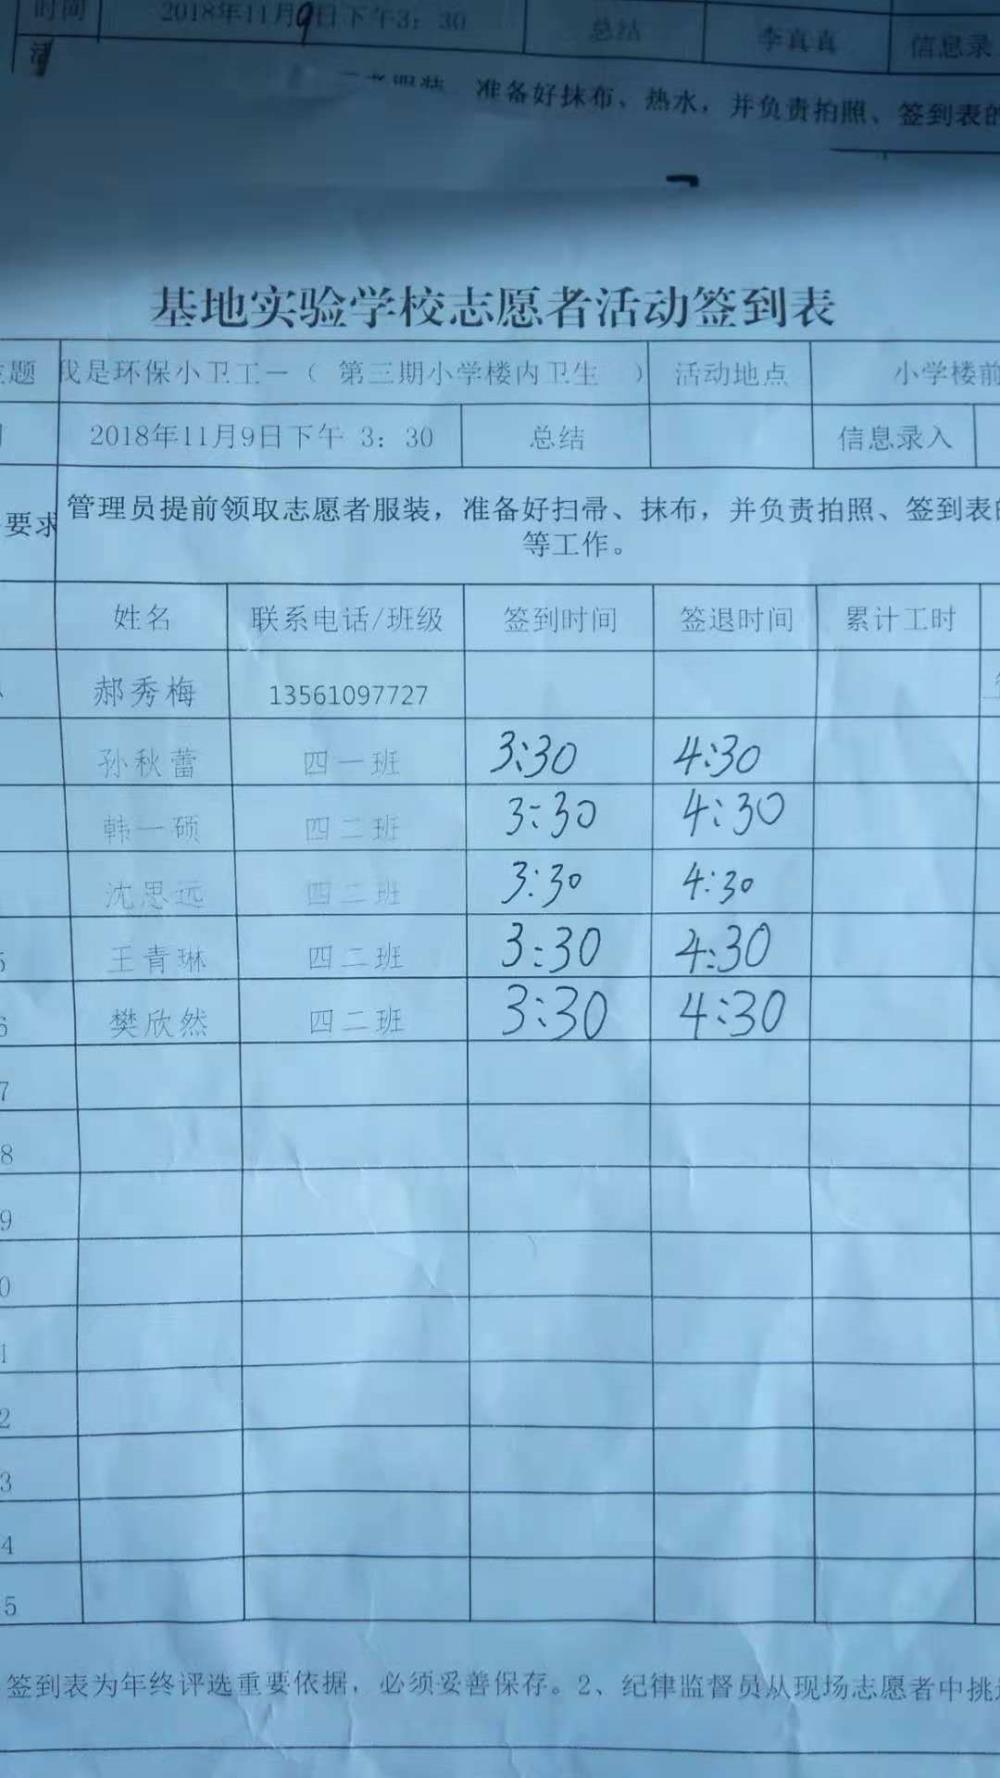 时间 2018年11月9日下午3：30 总结 李真真 信息录
准备好抹布、热水，并负责拍照、签到表的
基地实验学校志愿者活动签到表
题 我是环保小卫工－（ 第三期小学楼内卫生 ） 活动地点 小学楼前
2018年11月9日下午 3：30 总结 信息录入
要求 管理员提前领取志愿者服装，准备好扫帚、抹布，并负责拍照、签到表的
等工作。
姓名 联系电话/班级 签到时间 签退时间 累计工时
郝秀梅 13561097727
孙秋蕾 四一班 3:30 4:30
韩一硕 四二班 3:30 4:30
沈思远 四二班 3:30 4:30
5 王青琳 四二班 3:30 4:30
6 樊欣然 四二班 3:30 4:30
7
8
9
0
1
2
3
4
5
签到表为年终评选重要依据，必须妥善保存。2、纪律监督员从现场志愿者中挑